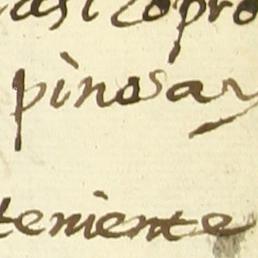 casi copro
pinosa y
teniente